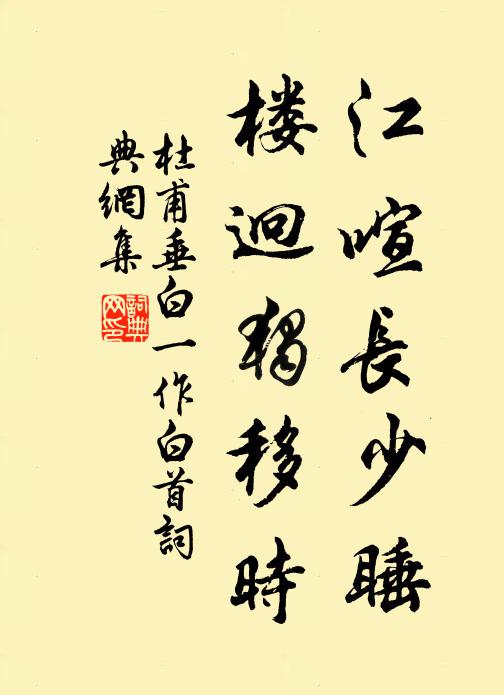 江喧長少睡
楼迥獨移時
杜甫垂白一作白首詞
典網集
詞典
网印